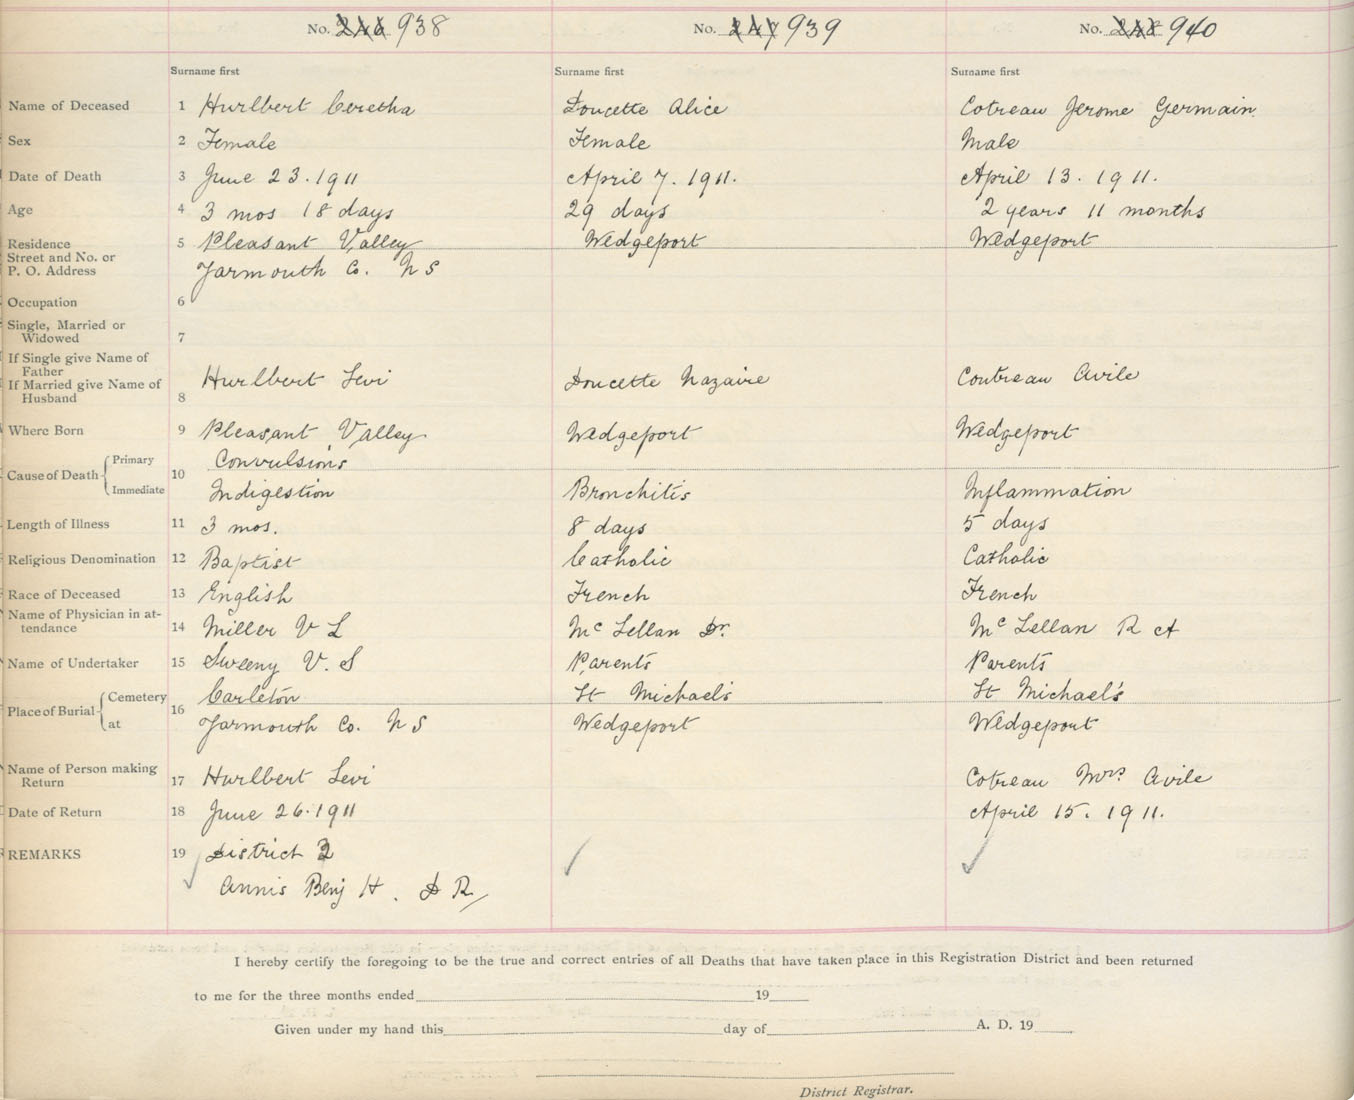 No. 246 938 No. 247 939 No. 248 940
Surname first Surname first Surname first
Name of Deceased 1 Hurlbert Ceretha Doucette Alice Cotreau Jerome Germain.
Sex 2 Female Female Male
Date of Death 3 June 23. 1911 April 7. 1911. April 13. 1911.
Age 4 3 mos 18 days 29 days 2 years 11 months
Residence 5 Pleasant Valley Wedgeport Wedgeport
Street and No. or
P. O. Address Yarmouth Co. N S
Occupation 6
Single, Married or
Widowed 7
If Single give Name of
Father
If Married give Name of Hurlbert Levi Doucette Nazaire Coutreau Avile
Husband 8
Where Born 9 Pleasant Valley Wedgeport Wedgeport
Primary Convulsions
Cause of Death 10
Immediate Indigestion Bronchitis Inflammation
Length of Illness 11 3 mos. 8 days 5 days
Religious Denomination 12 Baptist Catholic Catholic
Race of Deceased 13 English French French
Name of Physician in at-
tendance 14 Miller V L McLellan Dr. McLellan R A
Name of Undertaker 15 Sweeny V. S Parents Parents
Cemetery Carleton St Michael's St Michael's
Place of Burial 16
at Yarmouth Co. N S Wedgeport Wedgeport
Name of Person making
Return 17 Hurlbert Levi Cotreau Mrs Avile
Date of Return 18 June 26. 1911 April 15. 1911.
REMARKS 19 District 2
Annis Benj H. D R
I hereby certify the foregoing to be the true and correct entries of all Deaths that have taken place in this Registration District and been returned
to me for the three months ended 19
Given under my hand this day of A. D. 19
District Registrar.